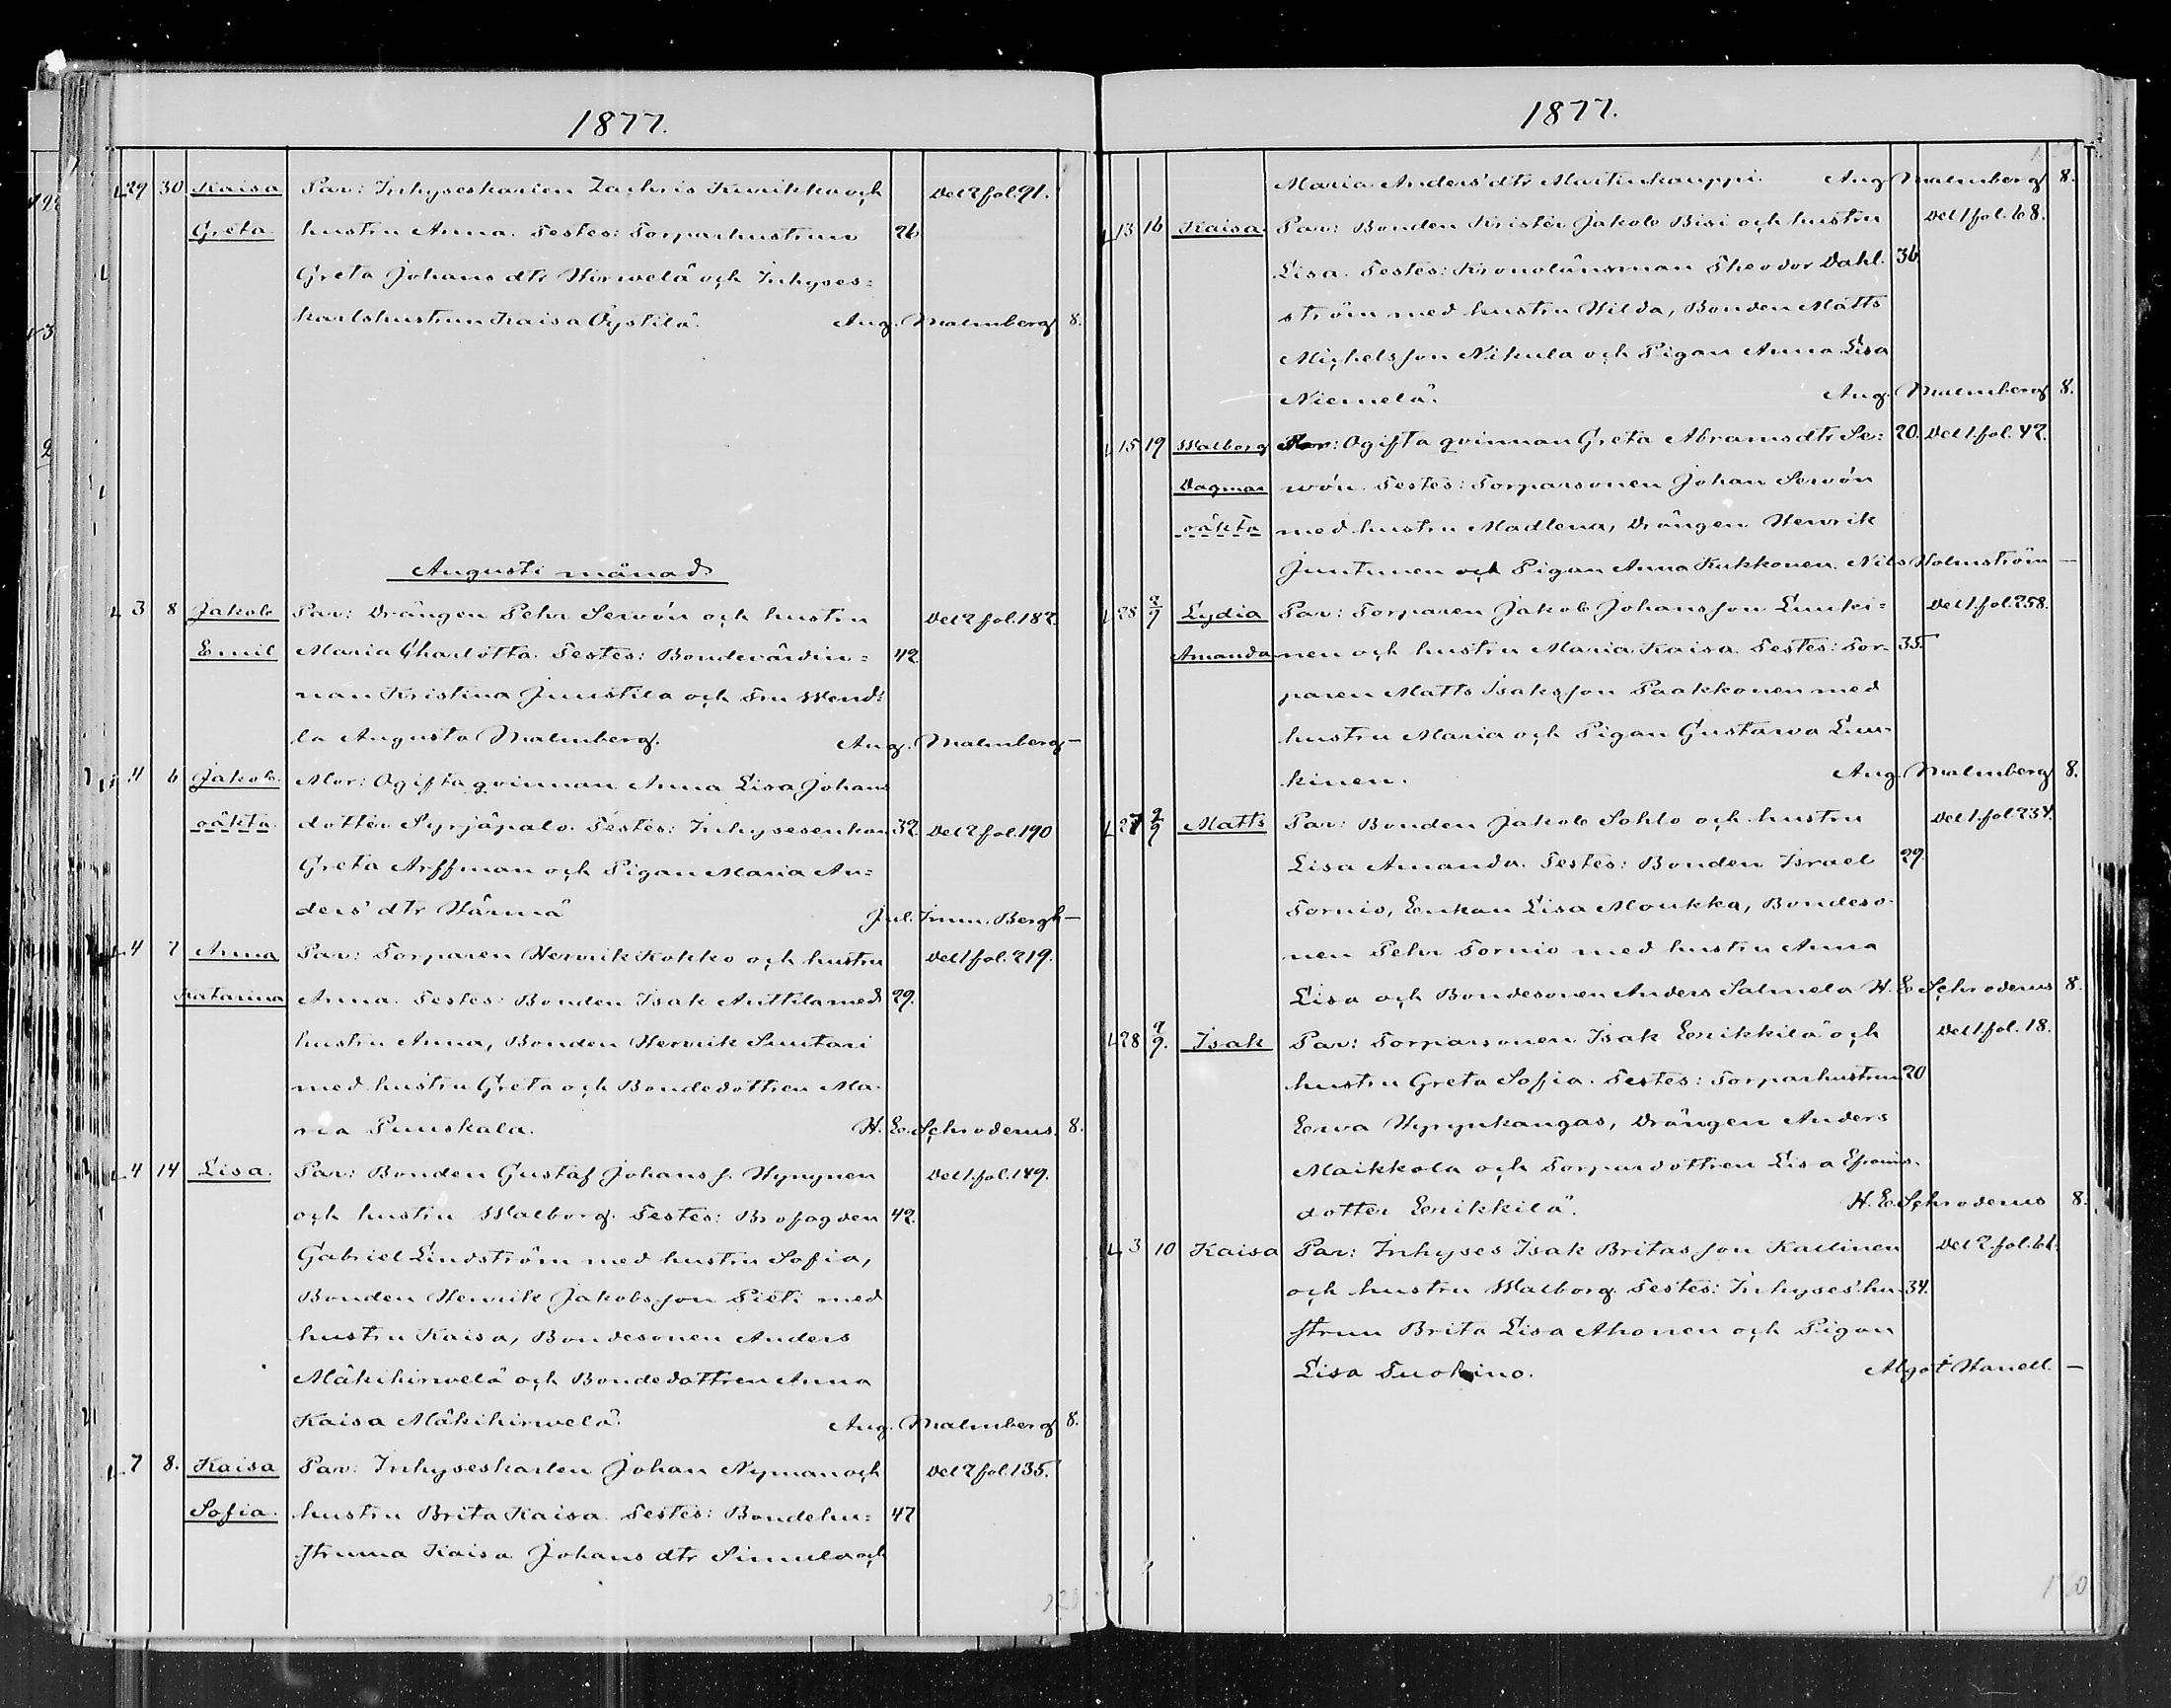 1877.
29 30 Kaisa Par: Inhyseskarlen Zachris Kurikka och Del 2 fol. 91.
Greta. hustru Anna. Testes: Torparhustrun 26
Greta Johans dtr Hirwelä och Inhyses=
karlshustrun Kaisa Öystilä. Aug. Malmberg 8.
Augusti månad
3 8 Jakob Par: Drängen Pehr Serwón och hustru Del 2 fol. 182.
Emil Maria Charlotta. Testes: Bondevärdin= 42
nan Kristina Juustila och Fru Wend=
la Augusta Malmberg. Aug. Malmberg —
4 6 Jakob. Mor: Ogifta qvinnan Anna Lisa Johans
oäkta. dotter Syrjäpalo. Testes: Inhysesenkan 32. Del 2 fol. 190
Greta Arffman och Pigan Maria An=
ders' dtr Härmä Jul. Imm. Bergh —
4 7 Anna Par: Torparen Henrik Kokko och hustru Del 1 fol. 219.
Katarina Anna. Testes: Bonden Isak Anttila med 29.
hustru Anna, Bonden Henrik Suutari
med hustru Greta och Bondedottren Ma-
ria Puuskala. H. E. Schroderus. 8.
4 14 Lisa. Par: Bonden Gustaf Johans s. Hyrynen Del 1. fol. 149.
och hustru Walborg. Testes: Brofogden 42.
Gabriel Lindström med hustru Sofia,
Bonden Henrik Jakobsson Pieti med
hustru Kaisa, Bondesonen Anders
Mäkihirwelä och Bondedottren Anna
Kaisa Mäkihirwelä. Aug. Malmberg 8.
7 8. Kaisa Par: Inhyseskarlen Johan Nyman och Del 2 fol. 135.
Sofia. hustru Brita Kaisa. Testes: Bondehu= 47
struna Kaisa Johans dtr Simula och
1877.
Maria Anders' dtr Martinkauppi. Aug. Malmberg 8.
13 16 Kaisa. Par: Bonden Krister Jakob Bisi och hustru Del 1 fol. 68.
Lisa. Testes: Kronolänsman Theodor Dahl- 36
ström med hustru Hilda, Bonden Matts
Michelsson Nikula och Pigan Anna Lisa
Niemelä. Aug. Malmberg 8.
15 19 Walborg Mor: Ogifta qvinnan Greta Abramsdtr Se= 20. Del 1. fol. 42.
Dagmar wón. Testes: Torparsonen Johan Serwón
oäkta med hustru Madlena, Drängen Henrik
Juntunen och Pigan Anna Kukkonen. Nils Holmström —
28 2/9 Lydia Par: Torparen Jakob Johansson Luuki= Del 1. fol. 258.
Amanda nen och hustru Maria Kaisa. Testes: Tor- 35.
paren Matts Isaksson Paakkonen med
hustru Maria och Pigan Gustawa Luu-
kinen. Aug. Malmberg 8.
27 2/9 Matts Par: Bonden Jakob Sohlo och hustru Del 1. fol. 234.
Lisa Amanda. Testes: Bonden Israel 29.
Tornio, Enkan Lisa Moukka, Bondeso-
nen Pehr Tornio med hustru Anna
Lisa och Bondesonen Anders Salmela H. E. Schroderus 8.
28 2/9. Isak Par: Torparsonen Isak Eenikkilä och Del 1. fol. 18.
hustru Greta Sofia. Testes: Torparhustrun 20
Eewa Hyrynkangas, Drängen Anders
Maikkola och Torpardottren Lisa Efraims-
dotter Eenikkilä. H. E. Schroderus 8.
3 10 Kaisa Par: Inhyses Isak Britasson Kallinen Del 2. fol. 61.
och hustru Walborg. Testes: Inhyses'hu- 34.
strun Brita Lisa Ahonen och Pigan
Lisa Tuokino. Algot Hanell. —